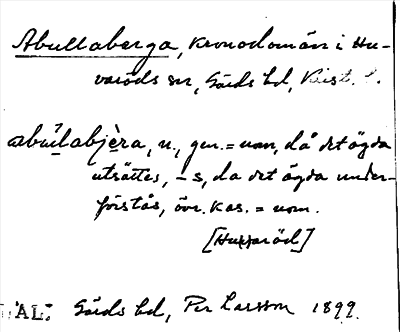 Abullaberga, Kronodomän i Hu-
varöds sn, Gärds hd, Krist. l.
abúlabjèra, n., gen. = nom, då det ägda
utsättes, -s, da det ägda under-
förstås, övr. kas. = nom.
[Huvaröd]
AL: Gärds hd, Per Larsson 1899.